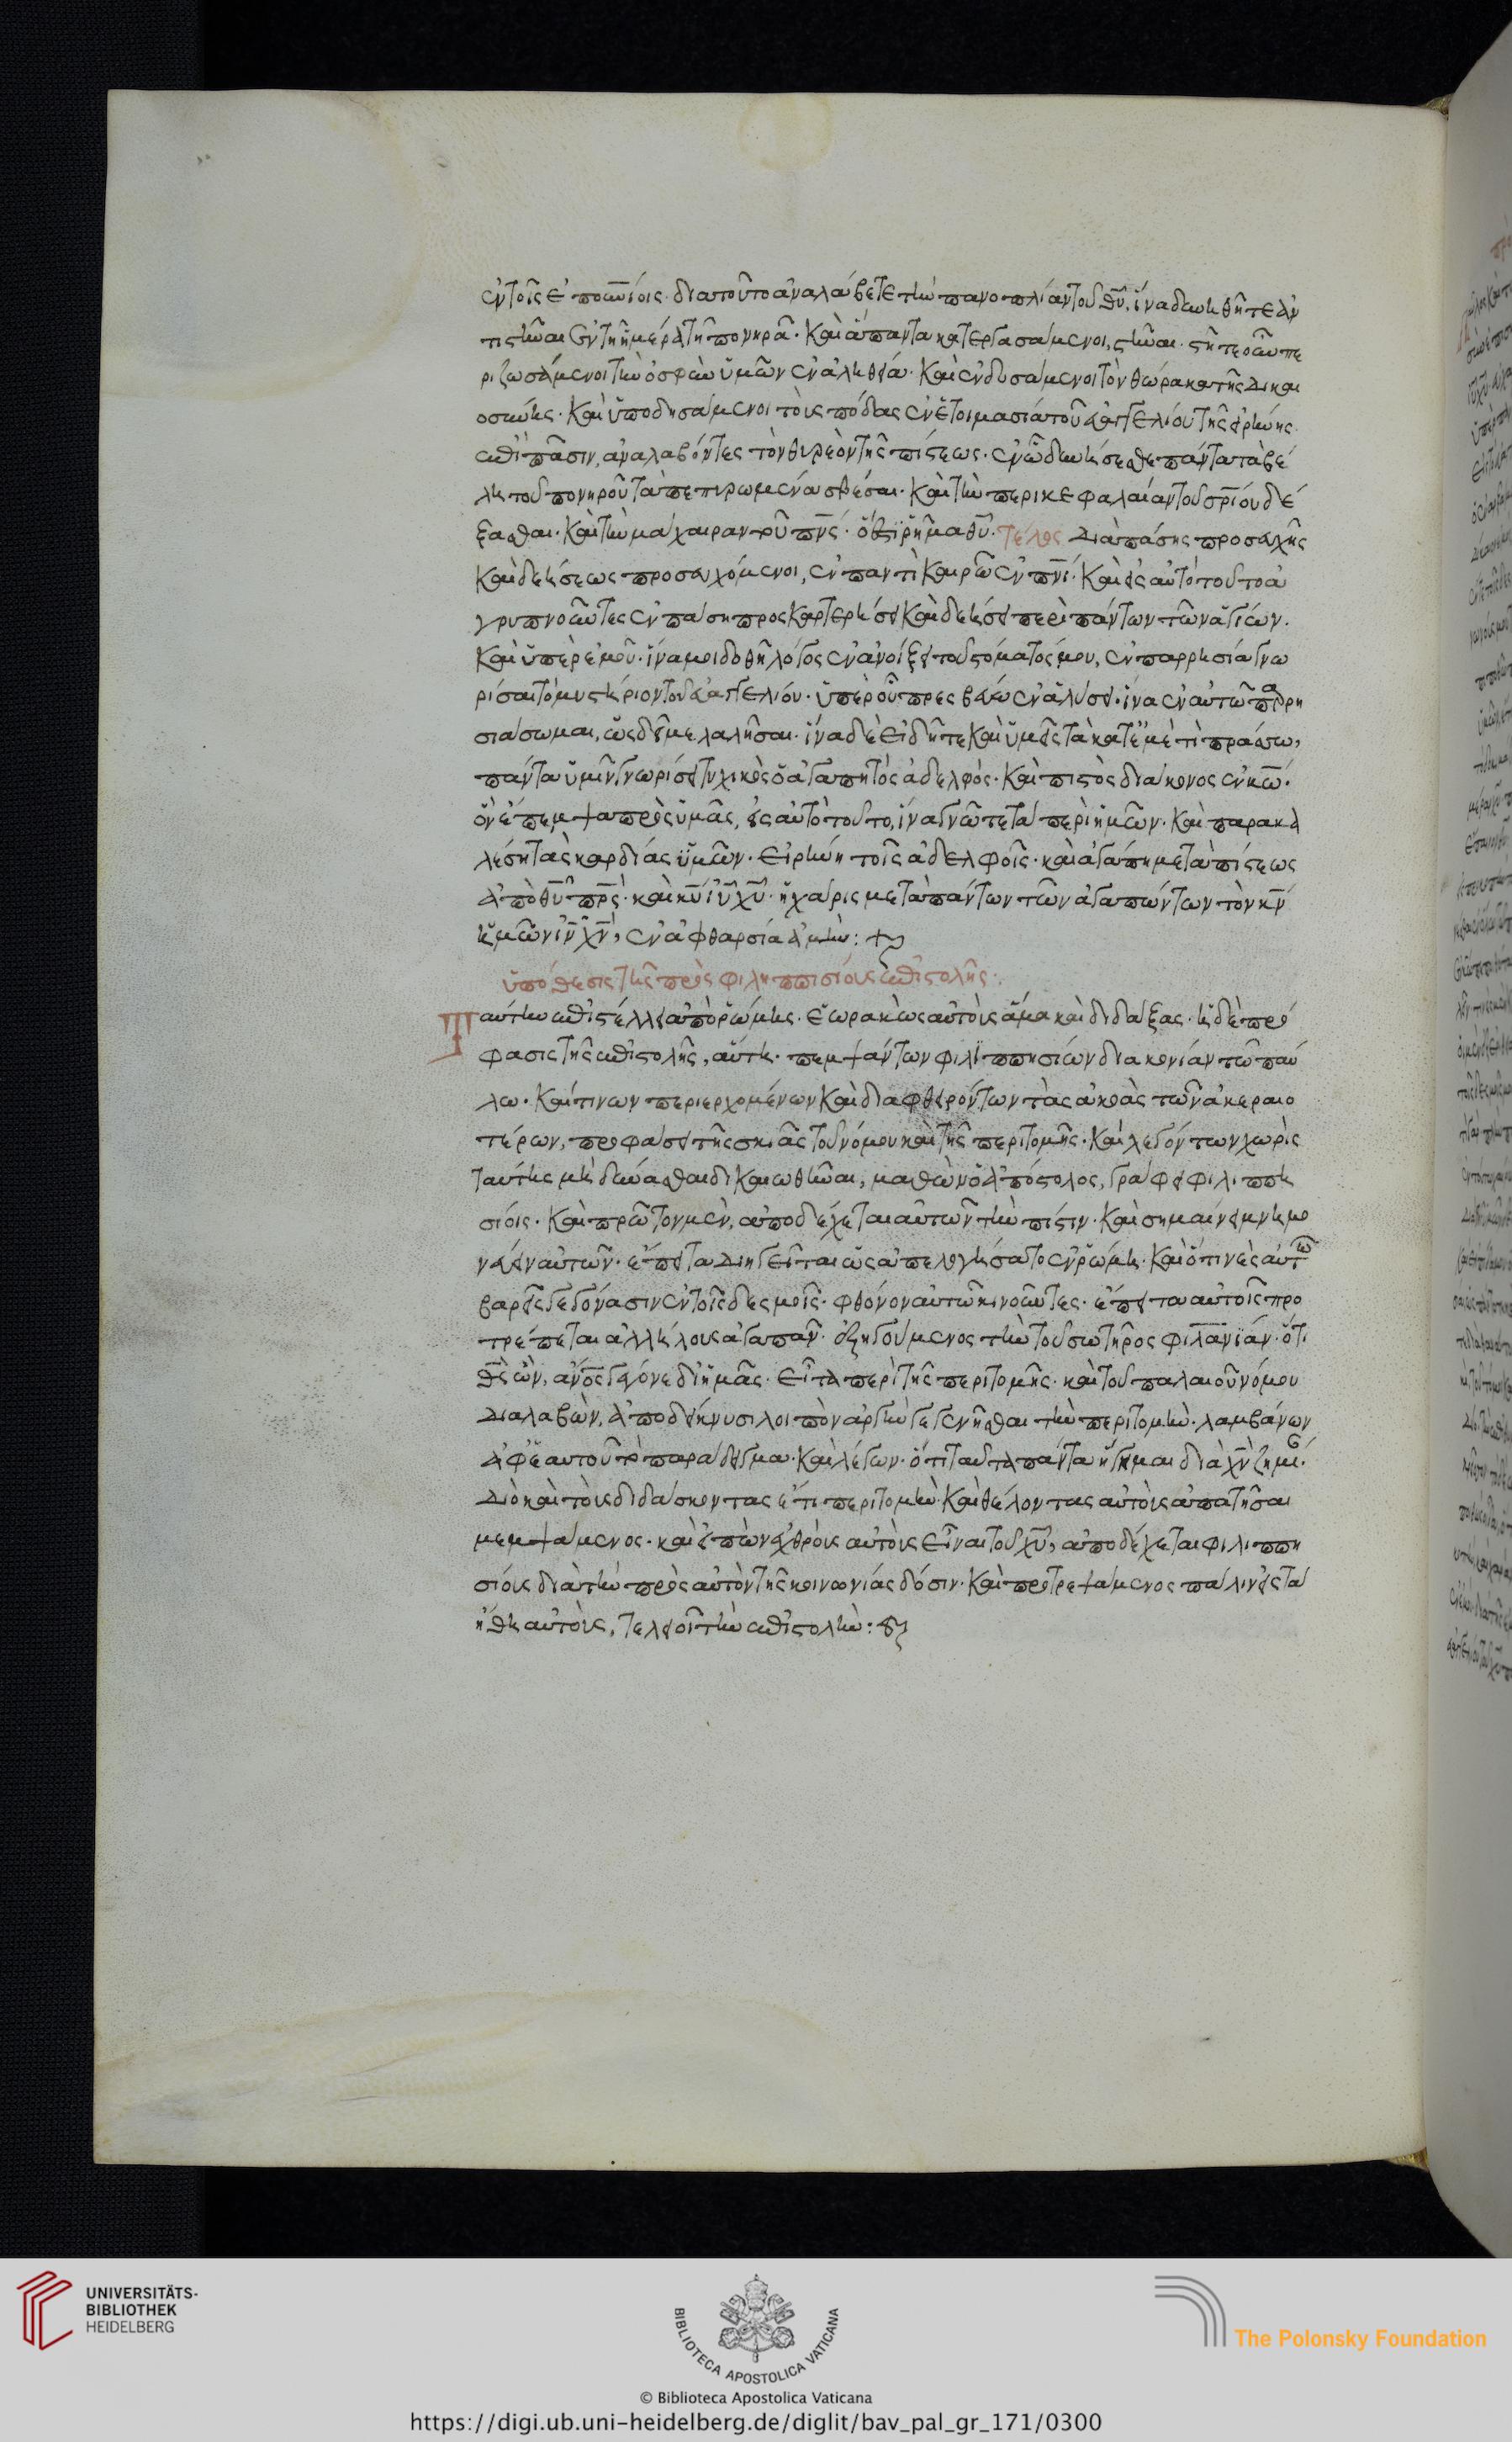 ἐν τοῖς ἐπουρανίοις· διατοῦτο ἀναλάβετε τὴν πανοπλίαν τοῦ θυ̅, ἵνα δυνηθῆτε ἀν
τιστῆναι ἐν τῇ ἡμέρα τῇ πονηρᾶ· καὶ ἅπαντα κατεργασάμενοι, στῆναι· στῆτε οὖν πε
ριζωσάμενοι τὴν ὀσφὺν ὑμῶν ἐν ἀληθεία· καὶ ἐνδυσάμενοι τὸν θώρακα τῆς δικαι
οσύνης· καὶ ὑποδησάμενοι τοὺς πόδας ἐν ἑτοιμασία τοῦ εὐαγγελίου τῆς εἰρήνης·
ἐπὶ πᾶσιν, ἀναλαβόντες τὸν θυρεὸν τῆς πίστεως· ἐν ὧ δυνήσεσθε πάντα τὰ βέ
λη τοῦ πονηροῦ τὰ πεπυρωμένα σβέσαι· καὶ τὴν περικεφαλαίαν τοῦ σρ̅ίου δέ
ξασθαι· καὶ τὴν μάχαιραν τοῦ πν̅ς· ὅ ἐστι ῥῆμα θυ̅· τέλος διὰ πάσης προσευχῆς
καὶ δεήσεως προσευχόμενοι, ἐν παντὶ καιρῶ ἐν πν̅ι· καὶ εἰς αὐτὸ τοῦτο ἀ
γρυπνοῦντες ἐν πάση προσκαρτερήσει καὶ δεήσει περὶ πάντων τῶν ἁγίων·
καὶ ὑπὲρ ἐμοῦ· ἵνα μοι δοθῆ λόγος ἐν ἀνοίξει τοῦ στόματός μου, ἐν παρρησία γνω
ρίσαι τὸ μυστήριον τοῦ εὐαγγελίου· ὑπὲρ οὗ πρεσβεύω ἐν ἁλύσει· ἵνα ἐν αὐτῶ παρρη
σιάσωμαι, ὡς δεῖ με λαλῆσαι· ἵνα δὲ εἰδῆτε καὶ ὑμεῖς τὰ κατ' ἐμὲ τί πράσσω,
πάντα ὑμῖν γνωρίσει τυχικὸς ὁ ἀγαπητὸς ἀδελφὸς· καὶ πιστὸς διάκονος ἐν κω̅·
ὃν ἔπεμψα πρὸς ὑμᾶς, εἰς αὐτὸ τοῦτο, ἵνα γνῶτε τὰ περὶ ἡμῶν· καὶ παρακα
λέση τὰς καρδίας ὑμῶν· εἰρήνη τοῖς ἀδελφοῖς· καὶ ἀγάπη μετὰ πίστεως
ἀπὸ θυ̅ πρ̅ς· καὶ κυ̅ ιυ̅ χυ̅· ἡ χάρις μετὰ πάντων τῶν ἀγαπώντων τὸν κν̅
ἡμῶν ιν̅ χν̅, ἐν ἀφθαρσία ἀμήν: +
ὑπόθεσις τῆς πρὸς φιληππισίους ἐπιστολῆς·
Ταύτην ἐπιστέλλει ἀπὸ ῥώμης· ἑωρακὼς αὐτοὺς ἅμα καὶ διδάξας· ἡ δὲ πρό
φασις τῆς ἐπιστολῆς, αὕτη· πεμψάντων φιλιππησίων διακονίαν τῶ παύ
λω· καί τινων περιερχομένων καὶ διαφθειρόντων τὰς ἀκοὰς τῶν ἀκεραιο
τέρων, προφάσει τῆς σκιᾶς τοῦ νόμου καὶ τῆς περιτομῆς· καὶ λεγόντων χωρὶς
ταύτης μὴ δύνασθαι δικαιωθῆναι, μαθὼν ὁ ἀπόστολος, γράφει φιλιππη
σίοις· καὶ πρῶτον μὲν, ἀποδέχεται αὐτῶν τὴν πίστιν· καὶ σημαίνει μνημο
νεύειν αὐτῶν· ἔπειτα διηγεῖται ὡς ἀπελογήσατο ἐν ῥώμη· καὶ ὅτι τινὲς αὐτῶ
βαρεῖς γεγόνασιν ἐν τοῖς δεσμοῖς· φθόνον αὐτῶ κινοῦντες· ἔπειτα αὐτοῖς προ
τρέπεται ἀλλήλους ἀγαπᾶν· ἐξηγούμενος τὴν τοῦ σωτῆρος φιλανι̅αν· ὅτι
θς̅ ὢν, ἀνο̅ς γέγονε δι' ἡμᾶς· εἶτα περὶ τῆς περιτομῆς· καὶ τοῦ παλαιοῦ νόμου
διαλαβὼν, ἀποδείκνυσι λοιπὸν ἀργὴν γεγενῆσθαι τὴν περιτομὴν· λαμβάνων
ἀφ' ἑαυτοῦ τὸ παράδειγμα· καὶ λέγων· ὅτι ταῦτα πάντα ἥγημαι διὰ χν̅ ζημί·
διὸ καὶ τοὺς διδάσκοντας ἔτι περιτομὴν· καὶ θέλοντας αὐτοὺς ἀπατῆσαι
μεμψάμενος· καὶ εἰπὼν ἐχθροὺς αὐτοὺς εἶναι τοῦ χυ̅, ἀποδέχεται φιλιππη
σίους διὰ τὴν πρὸς αὐτὸν τῆς κοινωνίας δόσιν· καὶ προτρεψάμενος πάλιν εἰς τὰ
ἤθη αὐτοὺς, τελειοῖ τὴν ἐπιστολὴν:
UNIVERSITÄTS-
BIBLIOTHEK
HEIDELBERG
BIBLIOTECA APOSTOLICA VATICANA
The Polonsky Foundation
© Biblioteca Apostolica Vaticana
https://digi.ub.uni-heidelberg.de/diglit/bav_pal_gr_171/0300